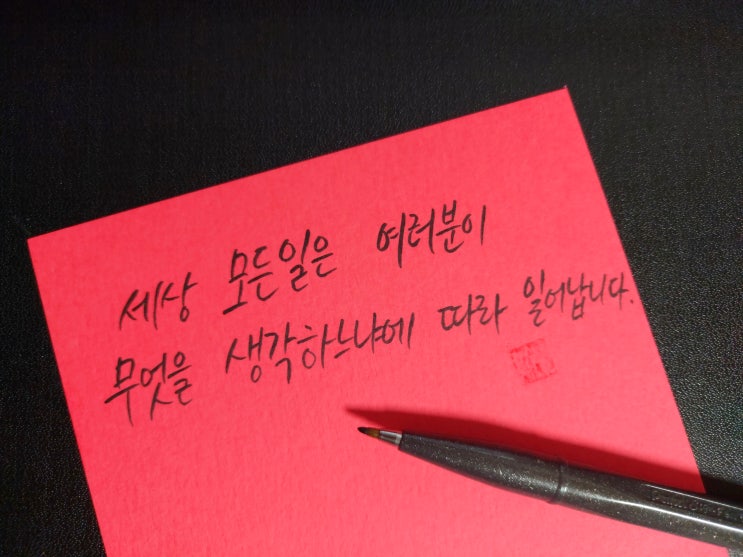 세상 모든일은 여러분이
무엇을 생각하느냐에 따라 일어납니다.